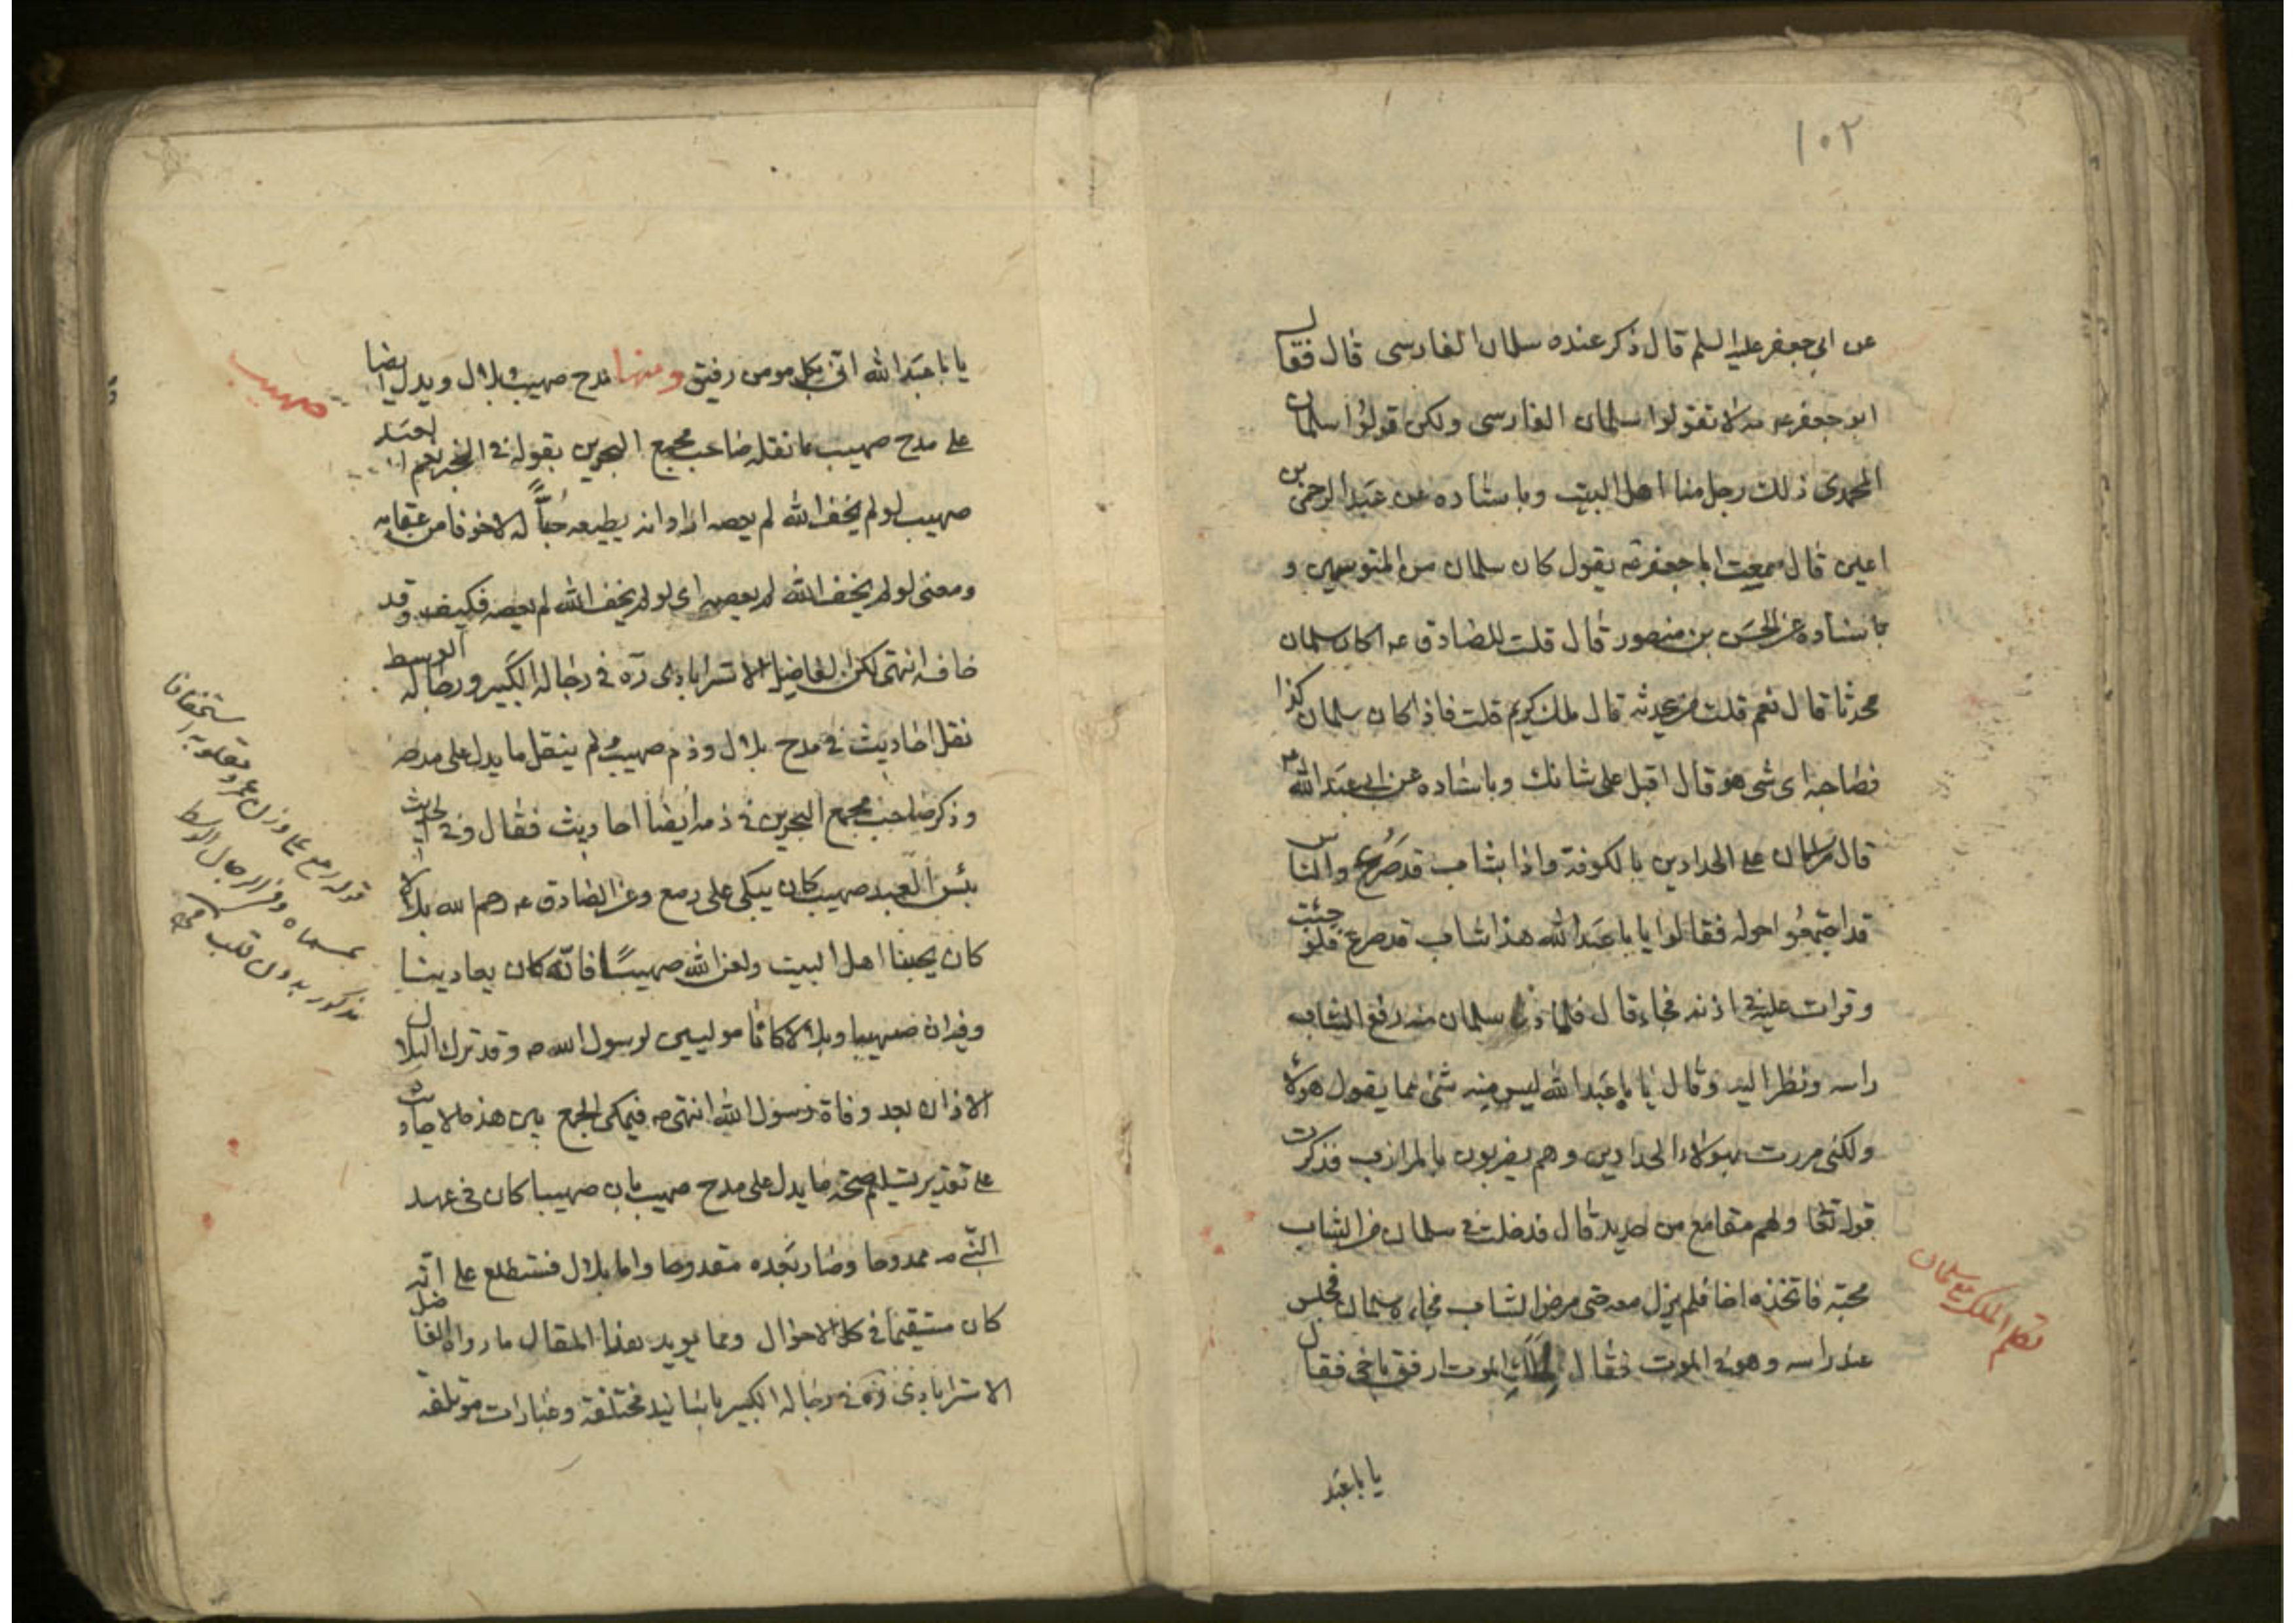 ١٠٢
عن ابي جعفر عليه السلم قال ذكر عنده سلمان الفارسى قال فقال
ابو جعفر عه مه لا تقولوا سلمان الفارسى ولكن قولوا سلمان
المحمدى ذلك رجل منا اهل البيت وباسناده عن عبد الرحمن بن
اعين قال سمعت ابا جعفر عه يقول كان سلمان من المتوسمين و
باسناده عن الحسن بن منصور قال قلت للصادق عه اكان سلمان
محدثا قال نعم قلت من يحدثه قال ملك كريم قلت فاذا كان سلمان كذا
فصاحبه اى شى هو قال اقبل على شانك وباسناده عن ابي عبد الله عم
قال مر سلمان على الحدادين بالكوفة واذا بشاب قد صرع والناس
قد اجتمعوا حوله فقالوا يا با عبد الله هذا شاب قد صرع فلو جئت
وقرات عليه في اذنه فجاء قال فلما دنا سلمان منه رفع الشاب
راسه ونظر اليه وقال يا با عبد الله ليس منه شئ مما يقول هولاء
ولكنى مررت بهولاء الحدادين وهم يضربون بالمرازب فذكرت
قوله تعا ولهم مقامع من حديد قال فدخلت في سلمان من الشاب
محبة فاتخذه اخا فلم يزل معه حتى مرض الشاب فجاءه سلمان فجلس
عند راسه وهو في الموت فقال يا ملك الموت ارفق باخى فقال
يا با عبد
تكلم الملك مع سلمان
يا با عبد الله انى بكل مومن رفيق ومنها مدح صهيب وبلال ويدل ايضا
على مدح صهيب ما نقله صاحب مجمع البحرين بقوله في الخبر نعم العبد
صهيب لو لم يخف الله لم يعصه اراد انه يطيعه حبا له لا خوفا من عقابه
ومعنى لو لم يخف الله لم يعصه اى لو لم يخف الله لم يعصه فكيف وقد
خافه انتهى لكن الفاضل الاسترابادى ره في رجاله الكبير ورجاله الوسط
نقل احاديث في مدح بلال وذم صهيب ولم ينقل ما يدل على مدحه
وذكر صاحب مجمع البحرين في ذمه ايضا احاديث فقال وفي الحديث
بئس العبد صهيب كان يبكى على رمع وعن الصادق عه رحم الله بلالا
كان يحبنا اهل البيت ولعن الله صهيبا فانه كان يعادينا
وفيه ان صهيبا وبلالا كانا موليين لرسول الله ص وقد ترك البلال
الاذان بعد وفاة رسول الله انتهى ص فيمكن الجمع بين هذه الاحاديث
على تقدير تسليم صحة ما يدل على مدح صهيب بان صهيبا كان في عهد
النبي ص ممدوحا وصار بعده مقدوحا واما بلال فستطلع على انه
كان مستقيما في كل الاحوال ومما يويد هذا المقال ما رواه الفاضل
الاسترابادى ره في رجاله الكبير باسانيد مختلفة وعبارات موتلفة
صهيب
قوله رمع على وزن عمر ومقلوبه استخفافا
بمسماه وفي الرجال الوسط
مذكور بدون قلب